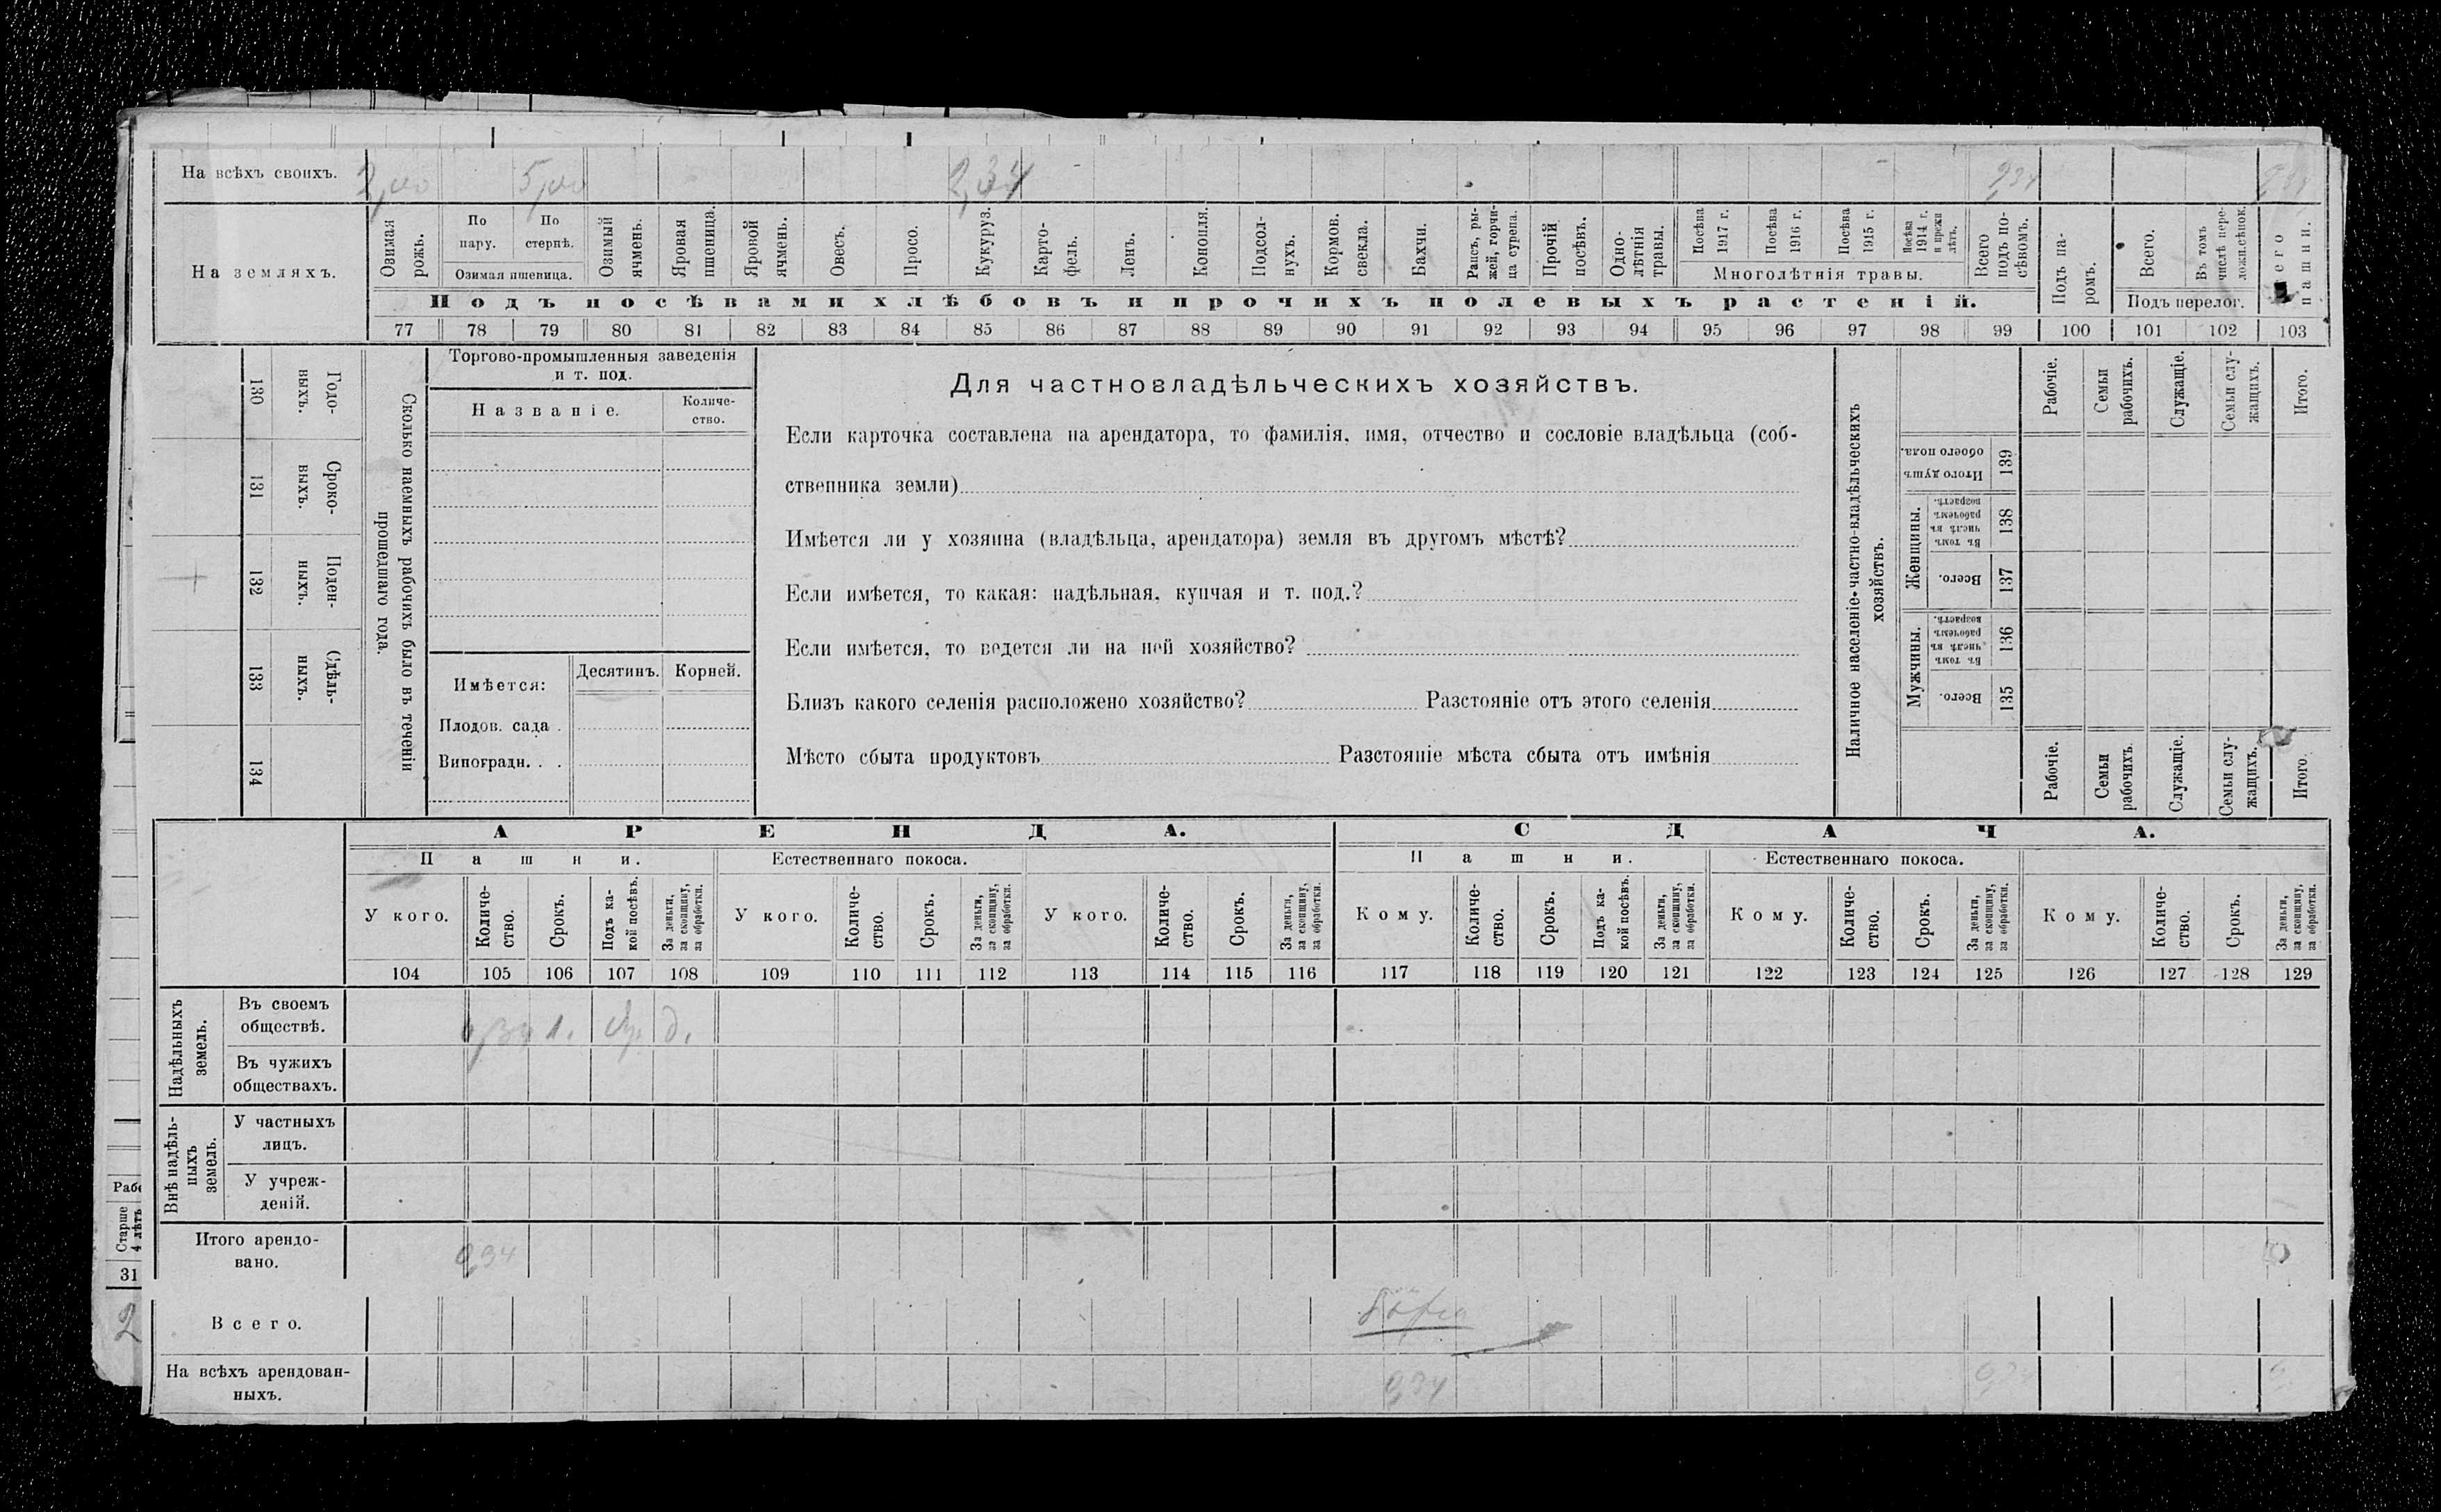 На всѣхъ своихъ. 2,00 5,00 2,34 2,34
На земляхъ.
Озимая рожь.
По пару.
По стернѣ.
Озимая пшеница.
Озимый ячмень.
Яровая пшеница.
Яровой ячмень.
Овесъ.
Просо.
Кукуруз.
Карто-
фель.
Ленъ.
Конопля.
Подсол-
нухъ.
Кормов.
свекла.
Бахчи.
Рапсъ, ры-
жей, горчи-
ца сурепа.
Прочій
посѣвъ.
Одно-
лѣтнія
травы.
Посѣва
1917 г.
Посѣва
1916 г.
Посѣва
1915 г.
Посѣва
1914 г.
и прежн
лѣтъ.
Многолѣтнія травы.
Всего
подъ по-
сѣвомъ.
Подъ па-
ромъ.
Всего.
Въ томъ
числѣ пере-
ложн.сѣнок.
Подъ перелог.
Всего
пашни.
Подъ посѣвами хлѣбовъ и прочихъ полевыхъ растеній.
77 78 79 80 81 82 83 84 85 86 87 88 89 90 91 92 93 94 95 96 97 98 99 100 101 102 103
130
Годо-
выхъ.
131
Сроко-
выхъ.
132
Поден-
ныхъ.
133
Сдѣль-
ныхъ.
134
Сколько наемныхъ рабочихъ было въ теченіи
прошедшаго года.
Торгово-промышленныя заведенія
и т. под.
Названіе.
Количе-
ство.
Имѣется:
Десятинъ.
Корней.
Плодов. сада .
Виноградн. . .
Для частновладѣльческихъ хозяйствъ.
Если карточка составлена на арендатора, то фамилія, имя, отчество и сословіе владѣльца (соб-
ственника земли)
Имѣется ли у хозяина (владѣльца, арендатора) земля въ другомъ мѣстѣ?
Если имѣется, то какая: надѣльная, купчая и т. под.?
Если имѣется, то ведется ли на ней хозяйство?
Близъ какого селенія расположено хозяйство? Разстояніе отъ этого селенія
Мѣсто сбыта продуктовъ Разстояніе мѣста сбыта отъ имѣнія
Наличное населеніе-частно-владѣльческихъ
хозяйствъ.
Рабочіе.
Семьи
рабочихъ.
Служащіе.
Семьи слу-
жащихъ.
Итого.
Итого душъ
обоего пола.
139
Женщины.
Въ томъ
числѣ въ
рабочемъ
возрастѣ.
138
Всего.
137
Мужчины.
Въ томъ
числѣ въ
рабочемъ
возрастѣ.
136
Всего.
135
Рабочіе.
Семьи
рабочихъ.
Служащіе.
Семьи слу-
жащихъ.
Итого.
АРЕНДА. СДАЧА.
Пашни. Естественнаго покоса. Пашни. Естественнаго покоса.
У кого.
Количе-
ство.
Срокъ.
Подъ ка-
кой посѣвъ.
За деньги,
за скопщину,
за обработки.
У кого.
Количе-
ство.
Срокъ.
За деньги,
за скопщину,
за обработки.
У кого.
Количе-
ство.
Срокъ.
За деньги,
за скопщину,
за обработки.
Кому.
Количе-
ство.
Срокъ.
Подъ ка-
кой посѣвъ.
За деньги,
за скопщину,
за обработки.
Кому.
Количе-
ство.
Срокъ.
За деньги,
за скопщину,
за обработки.
Кому.
Количе-
ство.
Срокъ.
За деньги,
за скопщину,
за обработки.
104 105 106 107 108 109 110 111 112 113 114 115 116 117 118 119 120 121 122 123 124 125 126 127 128 129
Надѣльныхъ
земель.
Въ своемъ
обществѣ.
1. д.
Въ чужихъ
обществахъ.
Внѣ надѣль-
ныхъ
земель.
У частныхъ
лицъ.
У учреж-
деній.
Итого арендо-
вано.
Всего.
На всѣхъ арендован-
ныхъ.
Рабо
Старше
4 лѣтъ
31
2